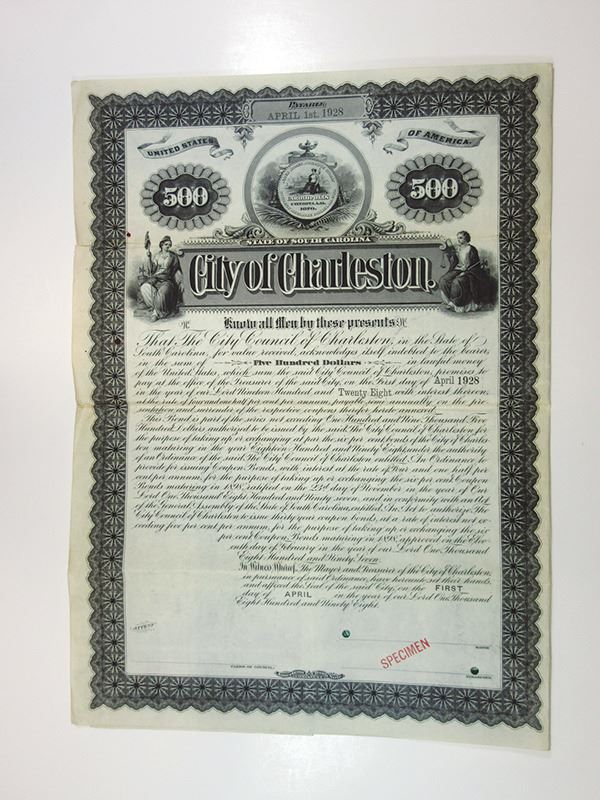 PAYABLE
APRIL 1st. 1928
UNITED STATES
OF AMERICA.
500
500
STATE OF SOUTH CAROLINA
City of Charleston.
Know all Men by these presents
That The City Council of Charleston, in the State of
South Carolina, for value received, acknowledges itself indebted to the bearer,
in the sum of Five Hundred Dollars in lawful money
of the United States, which sum the said City Council of Charleston, promises to
pay at the office of the Treasurer of the said City, on the First day of April 1928
in the year of our Lord Nineteen Hundred and Twenty Eight, with interest thereon,
at the rate of four and one half per cent. per annum, payable semi annually, on the pre-
sentation and surrender of the respective coupons therefor hereto annexed.
This Bond is part of the series not exceeding One Hundred and Nine Thousand Five
Hundred Dollars authorized to be issued by the said The City Council of Charleston for
the purpose of taking up or exchanging at par the six per cent bonds of the City of Charles-
ton maturing in the year Eighteen Hundred and Ninety Eight under the authority
of an Ordinance of the said The City Council of Charleston entitled An Ordinance to
provide for issuing Coupon Bonds, with interest at the rate of four and one half per
cent per annum, for the purpose of taking up or exchanging the six per cent Coupon
Bonds maturing in 1898, ratified on the 23d day of November in the year of Our
Lord One Thousand Eight Hundred and Ninety seven, and in conformity with an Act
of the General Assembly of the State of South Carolina, entitled An Act to authorize The
City Council of Charleston to issue thirty year coupon bonds, at a rate of interest not ex-
ceeding five per cent per annum, for the purpose of taking up or exchanging the six
per cent Coupon Bonds maturing in 1898, approved on the Elev-
enth day of February in the year of our Lord One Thousand
Eight Hundred and Ninety Seven.
In Witness Whereof, The Mayor and Treasurer of the City of Charleston,
in pursuance of said Ordinance, have hereunto set their hands,
and affixed the Seal of the said City, on the FIRST
day of APRIL in the year of our Lord One Thousand
Eight Hundred and Ninety Eight.
ATTEST
SPECIMEN
MAYOR.
CLERK OF COUNCIL.
TREASURER.